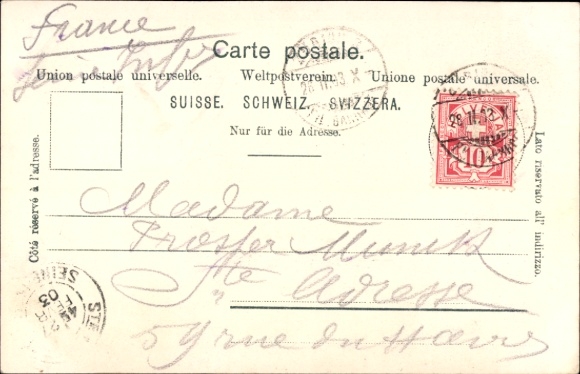 France
Carte postale.
Union postale universelle. Weltpostverein. Unione postale universale.
SUISSE. SCHWEIZ. SVIZZERA.
Nur für die Adresse.
Côté réservé à l'adresse.
Lato riservato all' indirizzo.
28 II. 03 X
HELVETIA
10
28 II. 03 X
Madame
Prosper Munick
Adresse
59 rue du Havre
SEINE
03